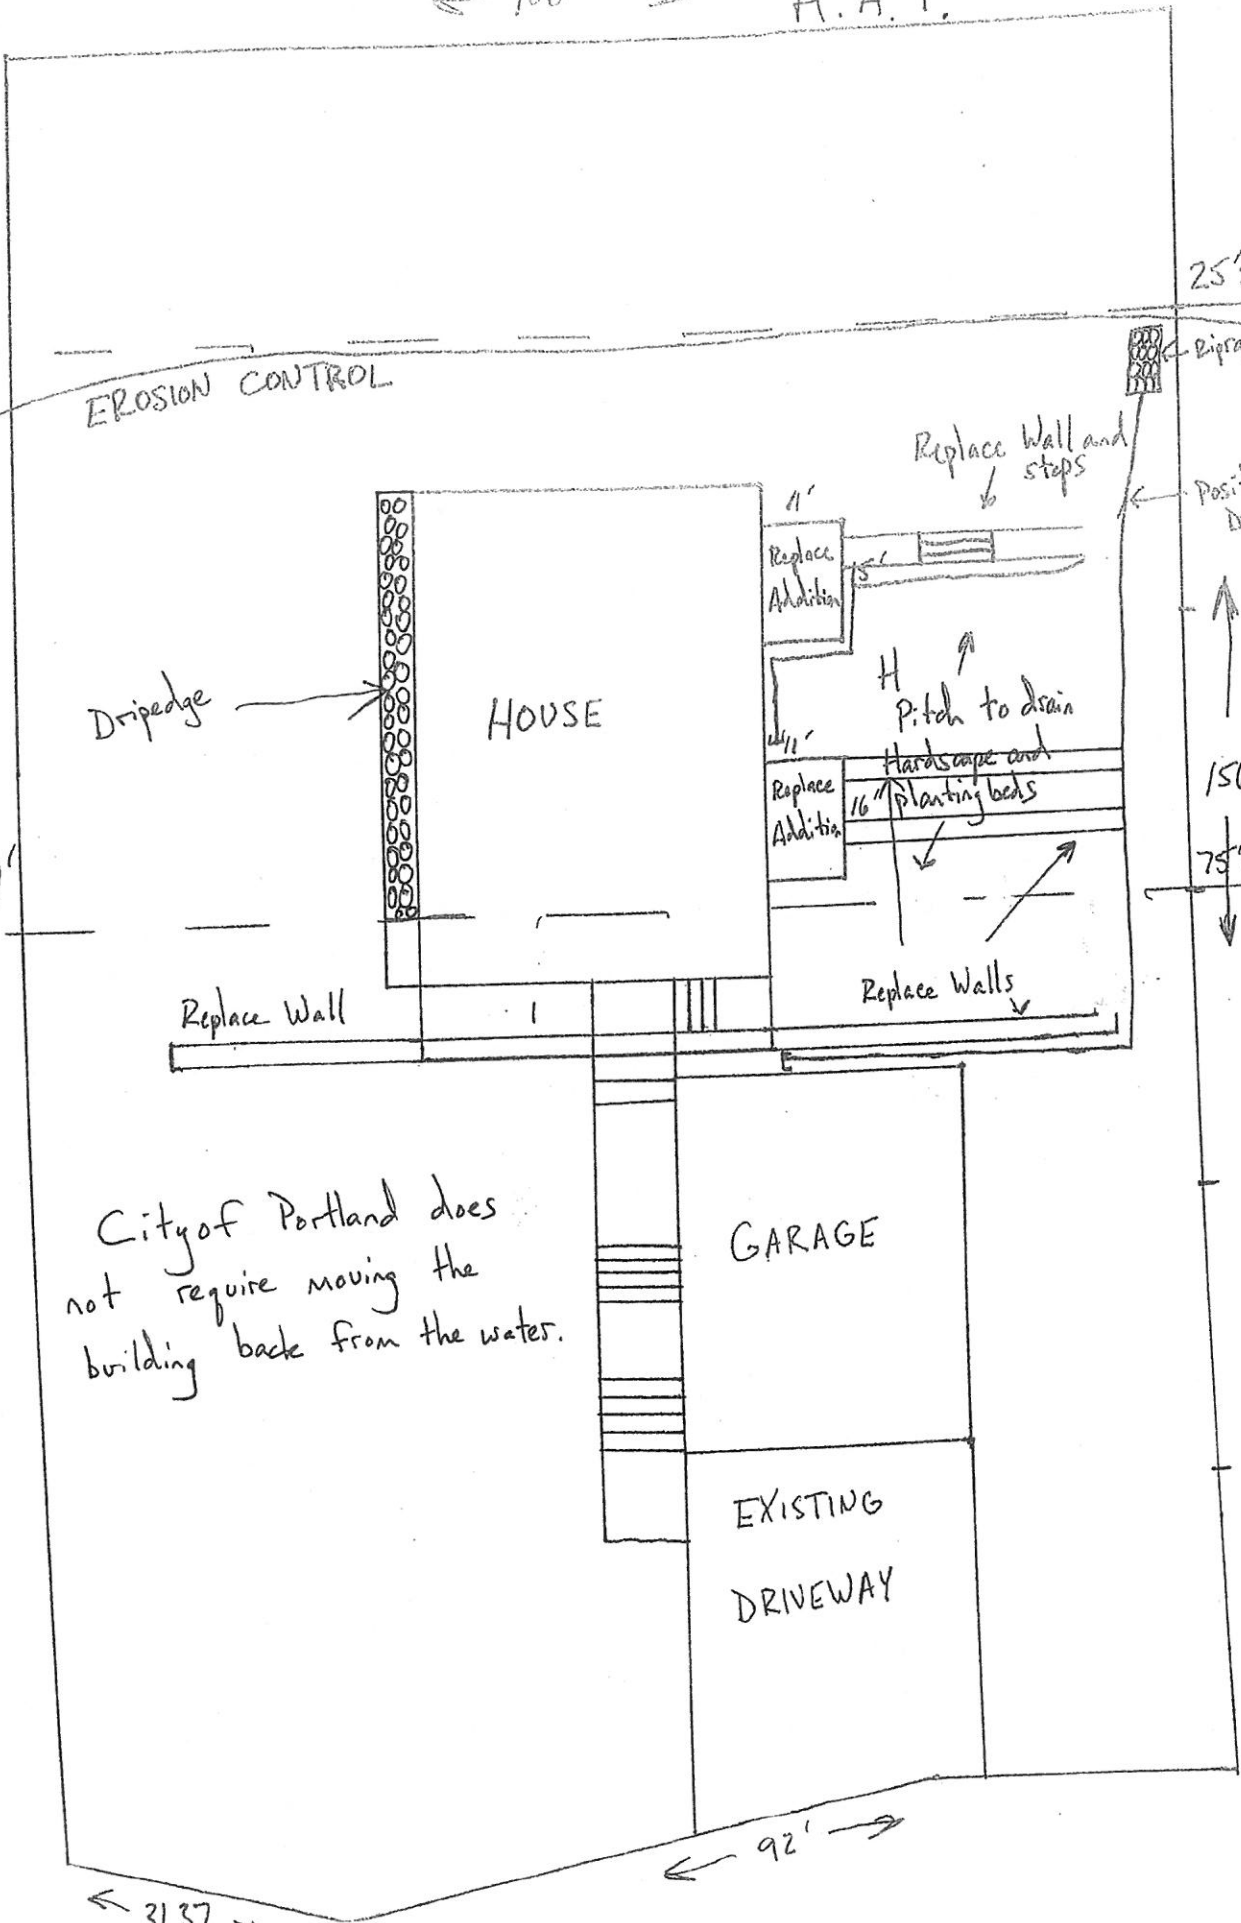 100
H. A. T.
25'
EROSION CONTROL
Replace Wall and
steps
11'
Replace
Addition
5'
Dripedge
HOUSE
H
Pitch to drain
Hardscape and
planting beds
11'
Replace
Addition
16"
75'
Replace Wall
Replace Walls
City of Portland does
not require moving the
building back from the water.
GARAGE
EXISTING
DRIVEWAY
92'
3137